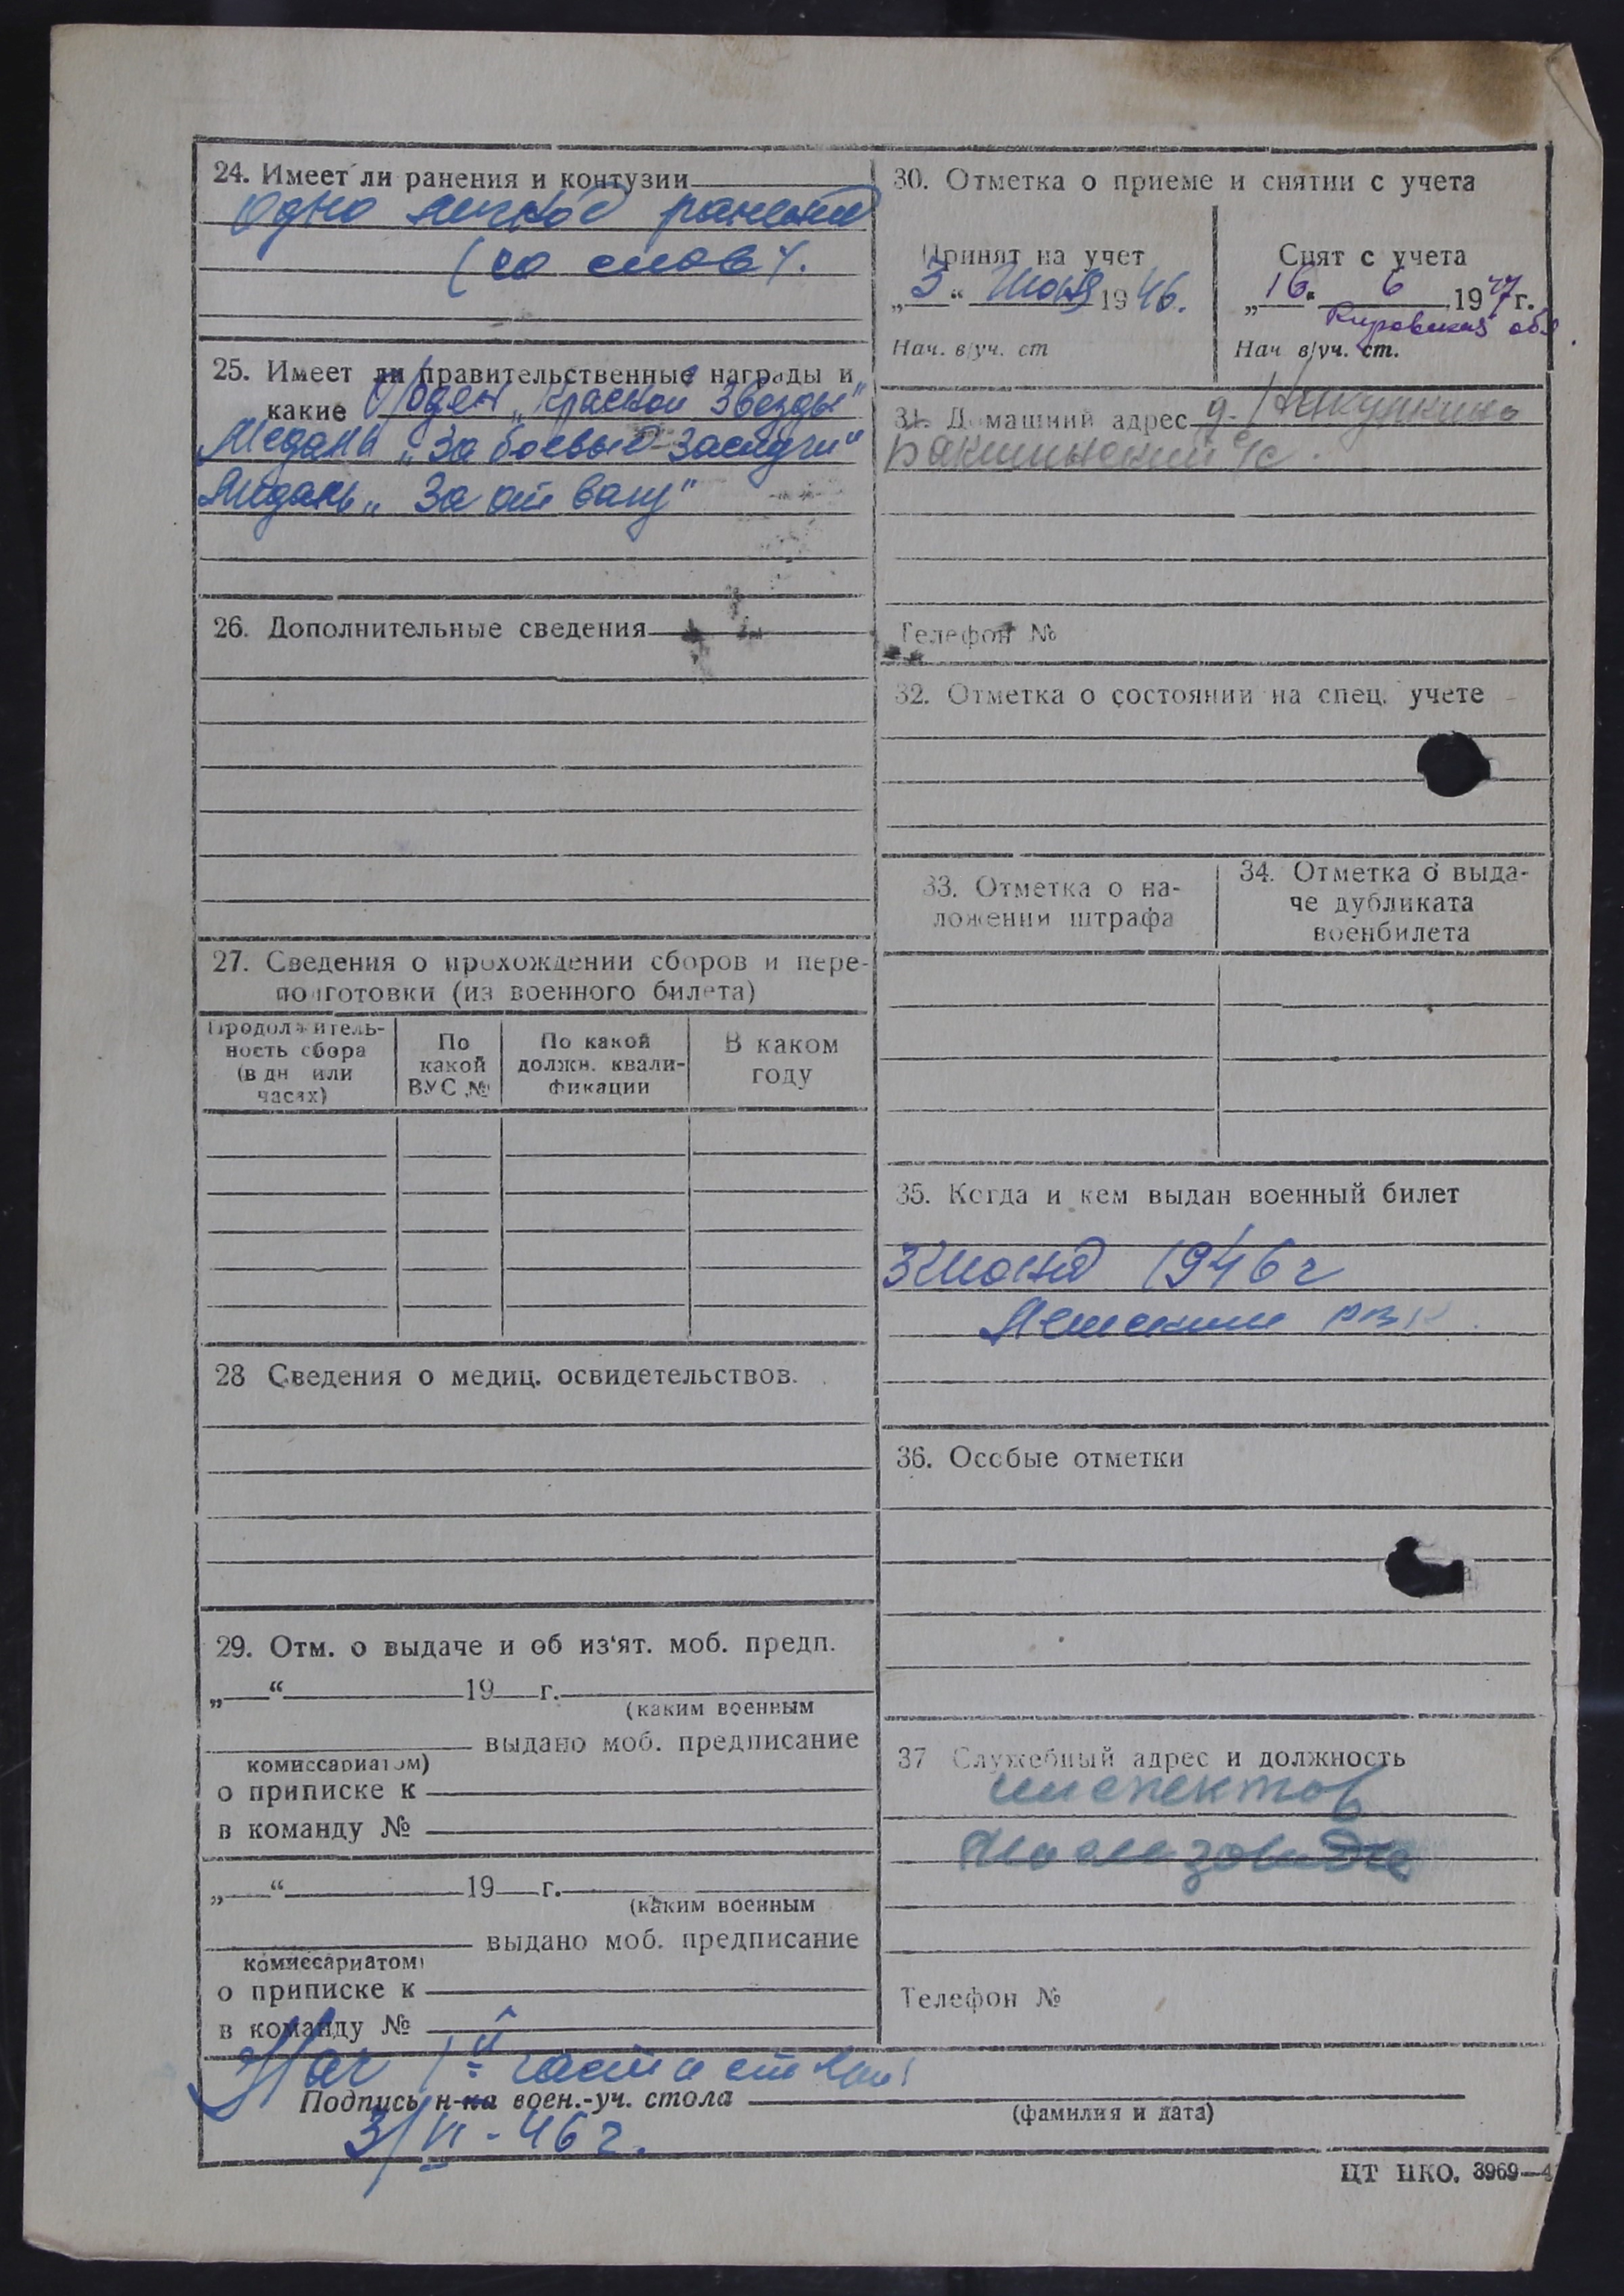 24. Имеет ли ранения и контузии
Одно легкое ранение
(со слов).
25. Имеет ли правительственные награды и
какие Орден „Красной Звезды"
Медаль „За боевые заслуги"
Медаль „За отвагу"
26. Дополнительные сведения
27. Сведения о прохождении сборов и пере-
подготовки (из военного билета)
Продолжитель-
ность сбора
(в дн или
часах)
По
какой
ВУС №
По какой
должн. квали-
фикации
В каком
году
28 Сведения о медиц. освидетельствов.
29. Отм. о выдаче и об из'ят. моб. предп.
„ “ 19 г.
(каким военным
выдано моб. предписание
комиссариатом)
о приписке к
в команду №
„ “ 19 г.
(каким военным
выдано моб. предписание
комиссариатом)
о приписке к
в команду №
30. Отметка о приеме и снятии с учета
Принят на учет
„3“ Июня 1946.
Нач. в/уч. ст
Снят с учета
„16“ 6 1947г.
Кировская обл.
Нач в/уч. ст.
31. Домашний адрес д.
с/с.
Телефон №
32. Отметка о состоянии на спец. учете
33. Отметка о на-
ложении штрафа
34. Отметка о выда-
че дубликата
военбилета
35. Когда и кем выдан военный билет
3 Июня 1946 г
РВК
36. Особые отметки
37 Служебный адрес и должность
инспектор
Телефон №
Нач 1й части
Подпись н-ка воен.-уч. стола
(фамилия и дата)
3/VI-46 г.
ЦТ НКО. 3969—4